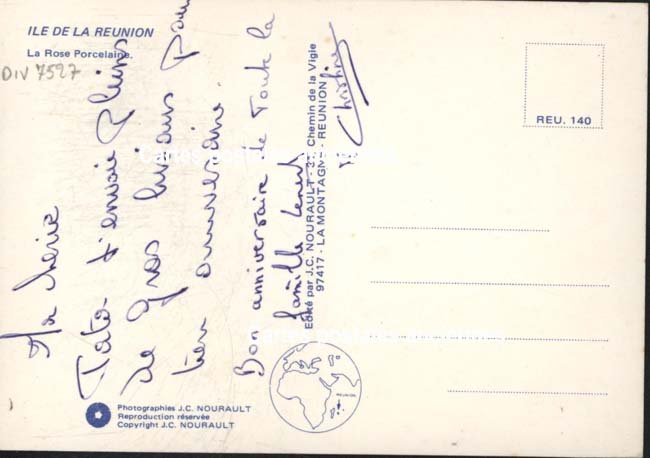 ILE DE LA REUNION
La Rose Porcelaine.
DIV 7527
REU. 140
Ma chérie
Tata t'envoie Pleins
de gros bisous pour
ton anniversaire.
Bon anniversaire de Toute la
famille
Christine
Edité par J.C. NOURAULT - 32, Chemin de la Vigie
97417 - LA MONTAGNE - REUNION
REUNION
Photographies J.C. NOURAULT
Reproduction réservée
Copyright J.C. NOURAULT
Cartes postales anciennes
Cartes postales anciennes